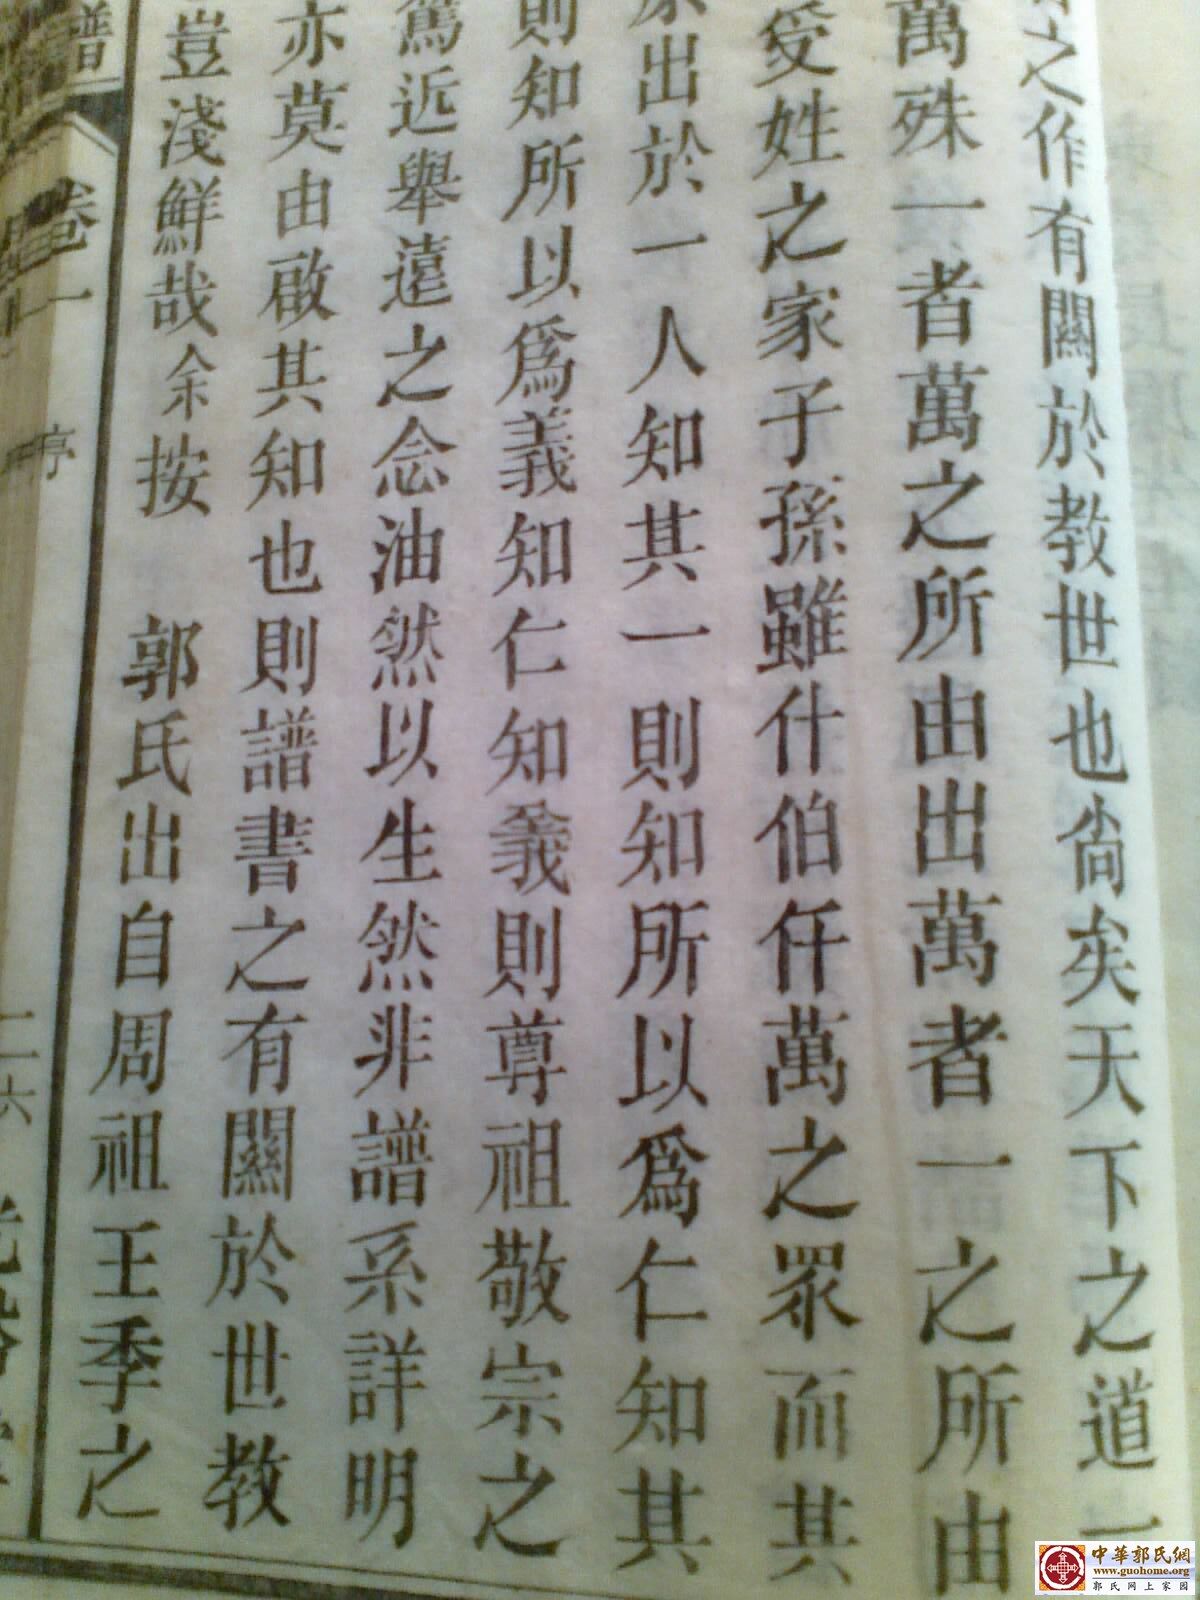 之作有關於教世也尚矣天下之道一
萬殊一者萬之所由出萬者一之所由
受姓之家子孫雖什伯仟萬之眾而其
出於一人知其一則知所以爲仁知其
則知所以爲義知仁知義則尊祖敬宗之
篤近舉遠之念油然以生然非譜系詳明
亦莫由啟其知也則譜書之有關於世教
豈淺鮮哉余按 郭氏出自周祖王季之
譜 卷一 序 二六
中華郭氏網
www.guohome.org
郭氏网上家园